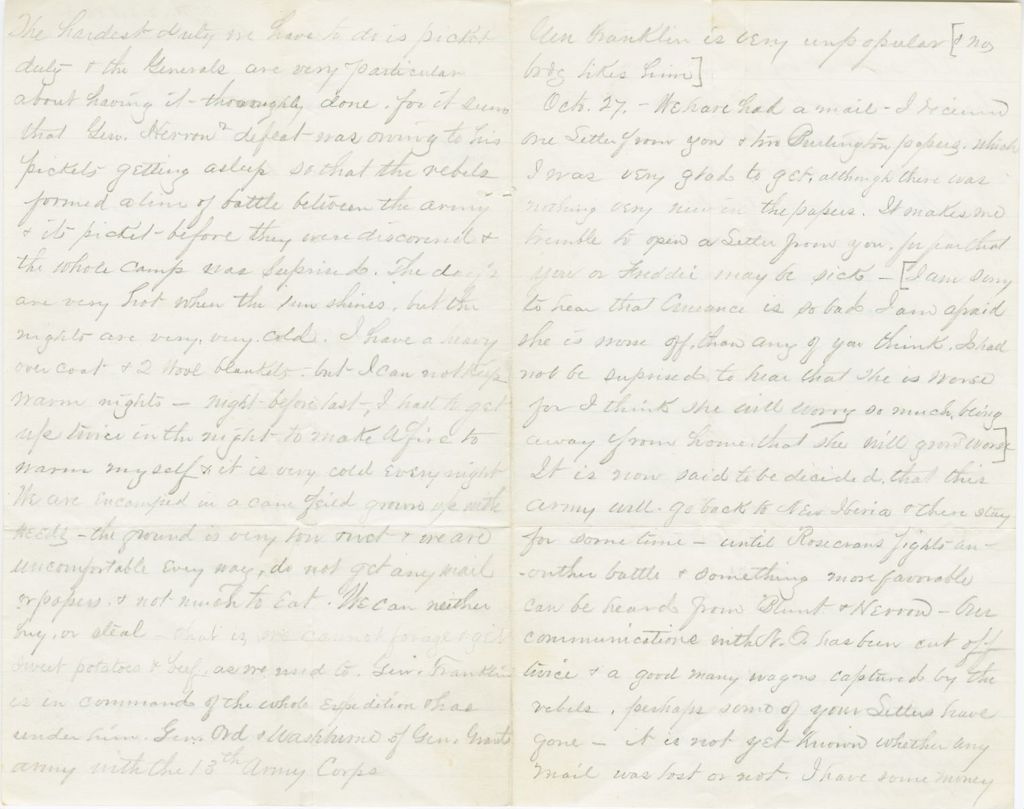 The hardest duty we have to do is picket
duty & the Generals are very particular
about having it thoroughly done. for it seems
that Gen. Herron's defeat was owing to his
pickets getting asleep so that the rebels
formed a line of battle between the army
& its picket before they were discovered &
the whole camp was suprised. The days
are very hot when the sun shines, but the
nights are very, very cold. I have a heavy
over coat & 2 wool blankets - but I can not keep
warm nights - night before last, I had to get
up twice in the night to make a fire to
warm myself & it is very cold every night
We are encamped in a cane feild grown up with
weeds - the ground is very low & wet & we are
uncomfortable every way, do not get any mail
or papers, & not much to eat. We can neither
buy, or steal - that is, we cannot forage & get
sweet potatoes & beef, as we used to. Gen. Franklin
is in command of the whole expedition & has
under him. Gen. Ord & Washburne of Gen. Grants
army with the 13th Army Corps
Gen Franklin is very unpopular [& no
bdy likes him]
Oct. 27. - We have had a mail - I received
one letter from you & two Burlington papers. which
I was very glad to get, although there was
nothing very new in the papers. It makes me
tremble to open a letter from you, for fear that
you or Freddie may be sick - [I am sorry
to hear that is so bad I am afraid
she is worse off, than any of you think. I shall
not be suprised to hear that she is worse
for I think she will worry so much, being
away from home, that she will grow worse]
It is now said to be decided, that this
army will go back to New Iberia & there stay
for some time - until Rosecrans fights an-
-outher battle & something more favorable
can be heard from Blunt & Herron - Our
communications with N.O. has been cut off
twice & a good many wagons captured by the
rebels, perhaps some of your letters have
gone - it is not yet known whether any
mail was lost or not. I have some money